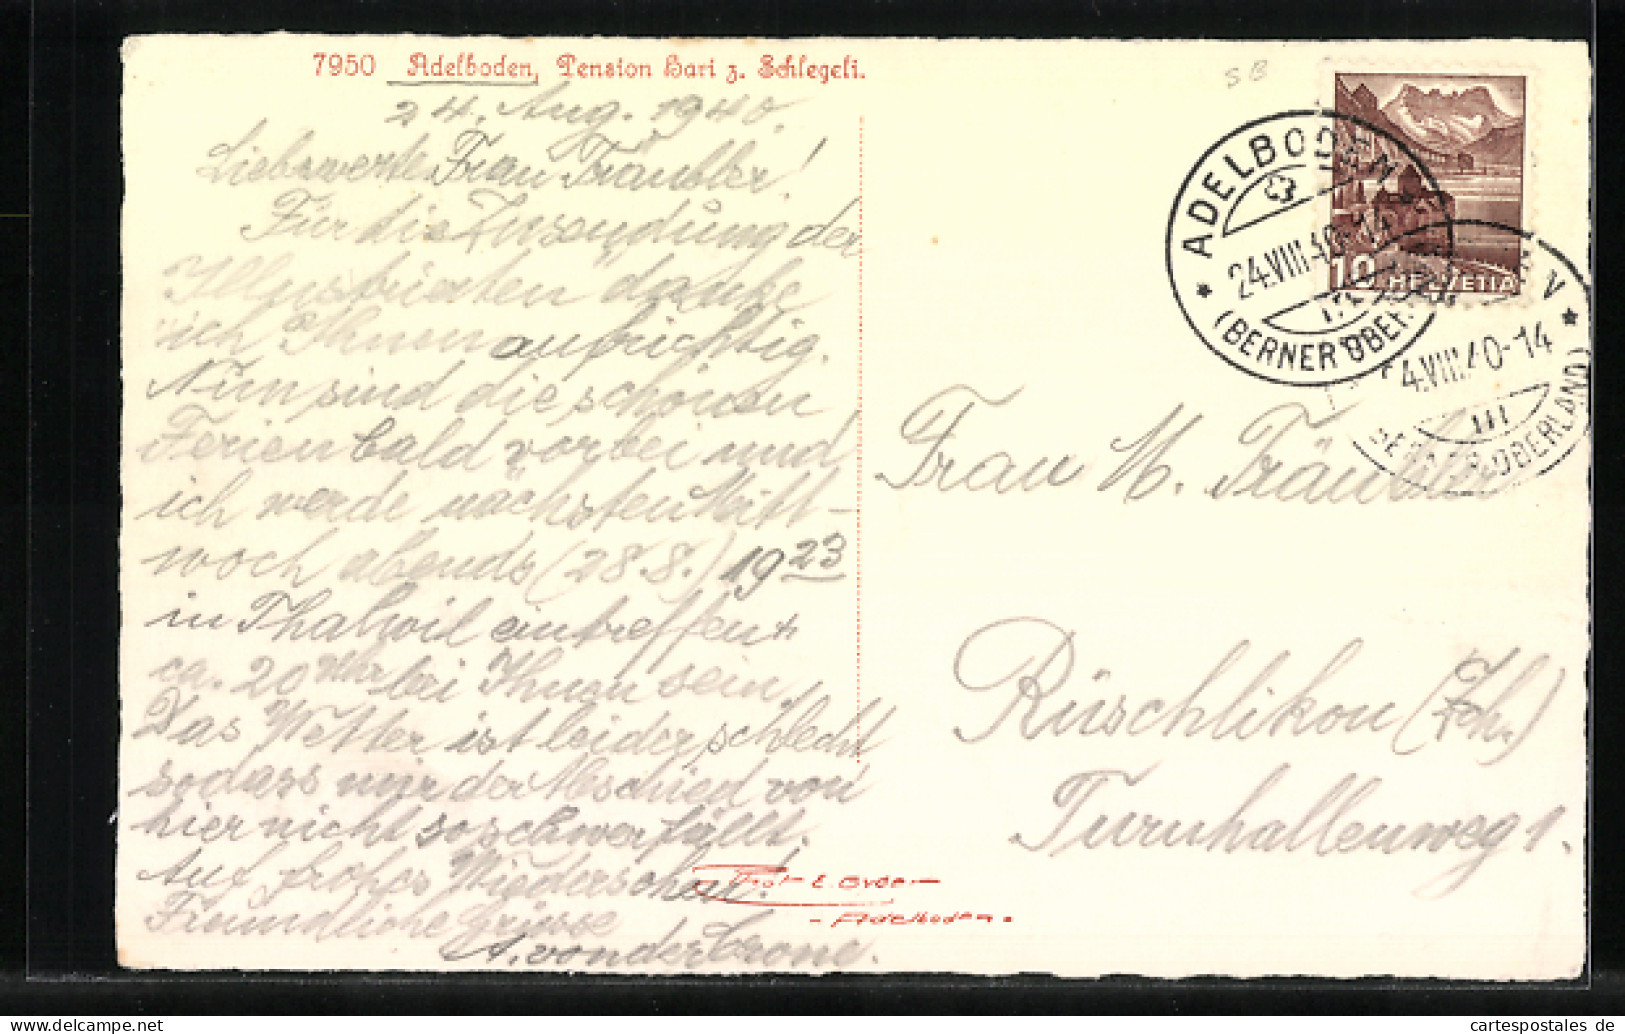 7950 Adelboden, Pension Hari z. Schlegeli.
24. Aug. 1940.
Liebwerte Frau Träubler!
Für die Zusendung der
Illustrierten danke
ich Ihnen aufrichtig.
Nun sind die schönen
Ferien bald vorbei und
ich werde nächsten Mitt-
woch abends (28.8.) 19 23
in Thalwil eintreffen &
ca. 20 Uhr bei Ihnen sein.
Das Wetter ist leider schlecht
sodass mir der Abschied von
hier nicht so schwer fällt.
Auf frohes Wiedersehen!
Freundliche Grüsse
A. von der Crone.
SB
ADELBODEN
24.VIII.40-14
(BERNER OBERLAND)
10 HELVETIA
V
4.VIII.40-14
III
BERNER OBERLAND)
Frau M. Träubler
Rüschlikon (Zch.)
Turnhallenweg 1.
Phot E. Gyger
- Adelboden -
www.cartespostales.eu
cartespostales de